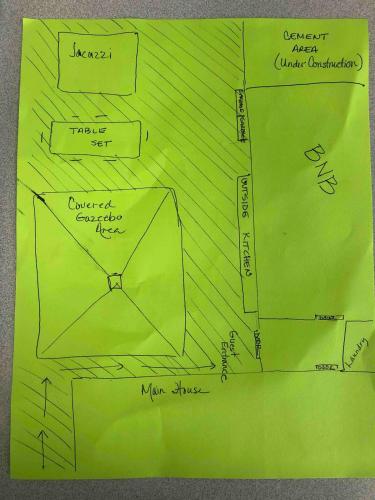 Jacuzzi
CEMENT
AREA
(Under Construction)
TABLE
SET
BNB
Covered
Gazeebo
Area
OUTSIDE KITCHEN
Guest
Entrance
DOOR
DOOR
DOOR
Laundry
Main House